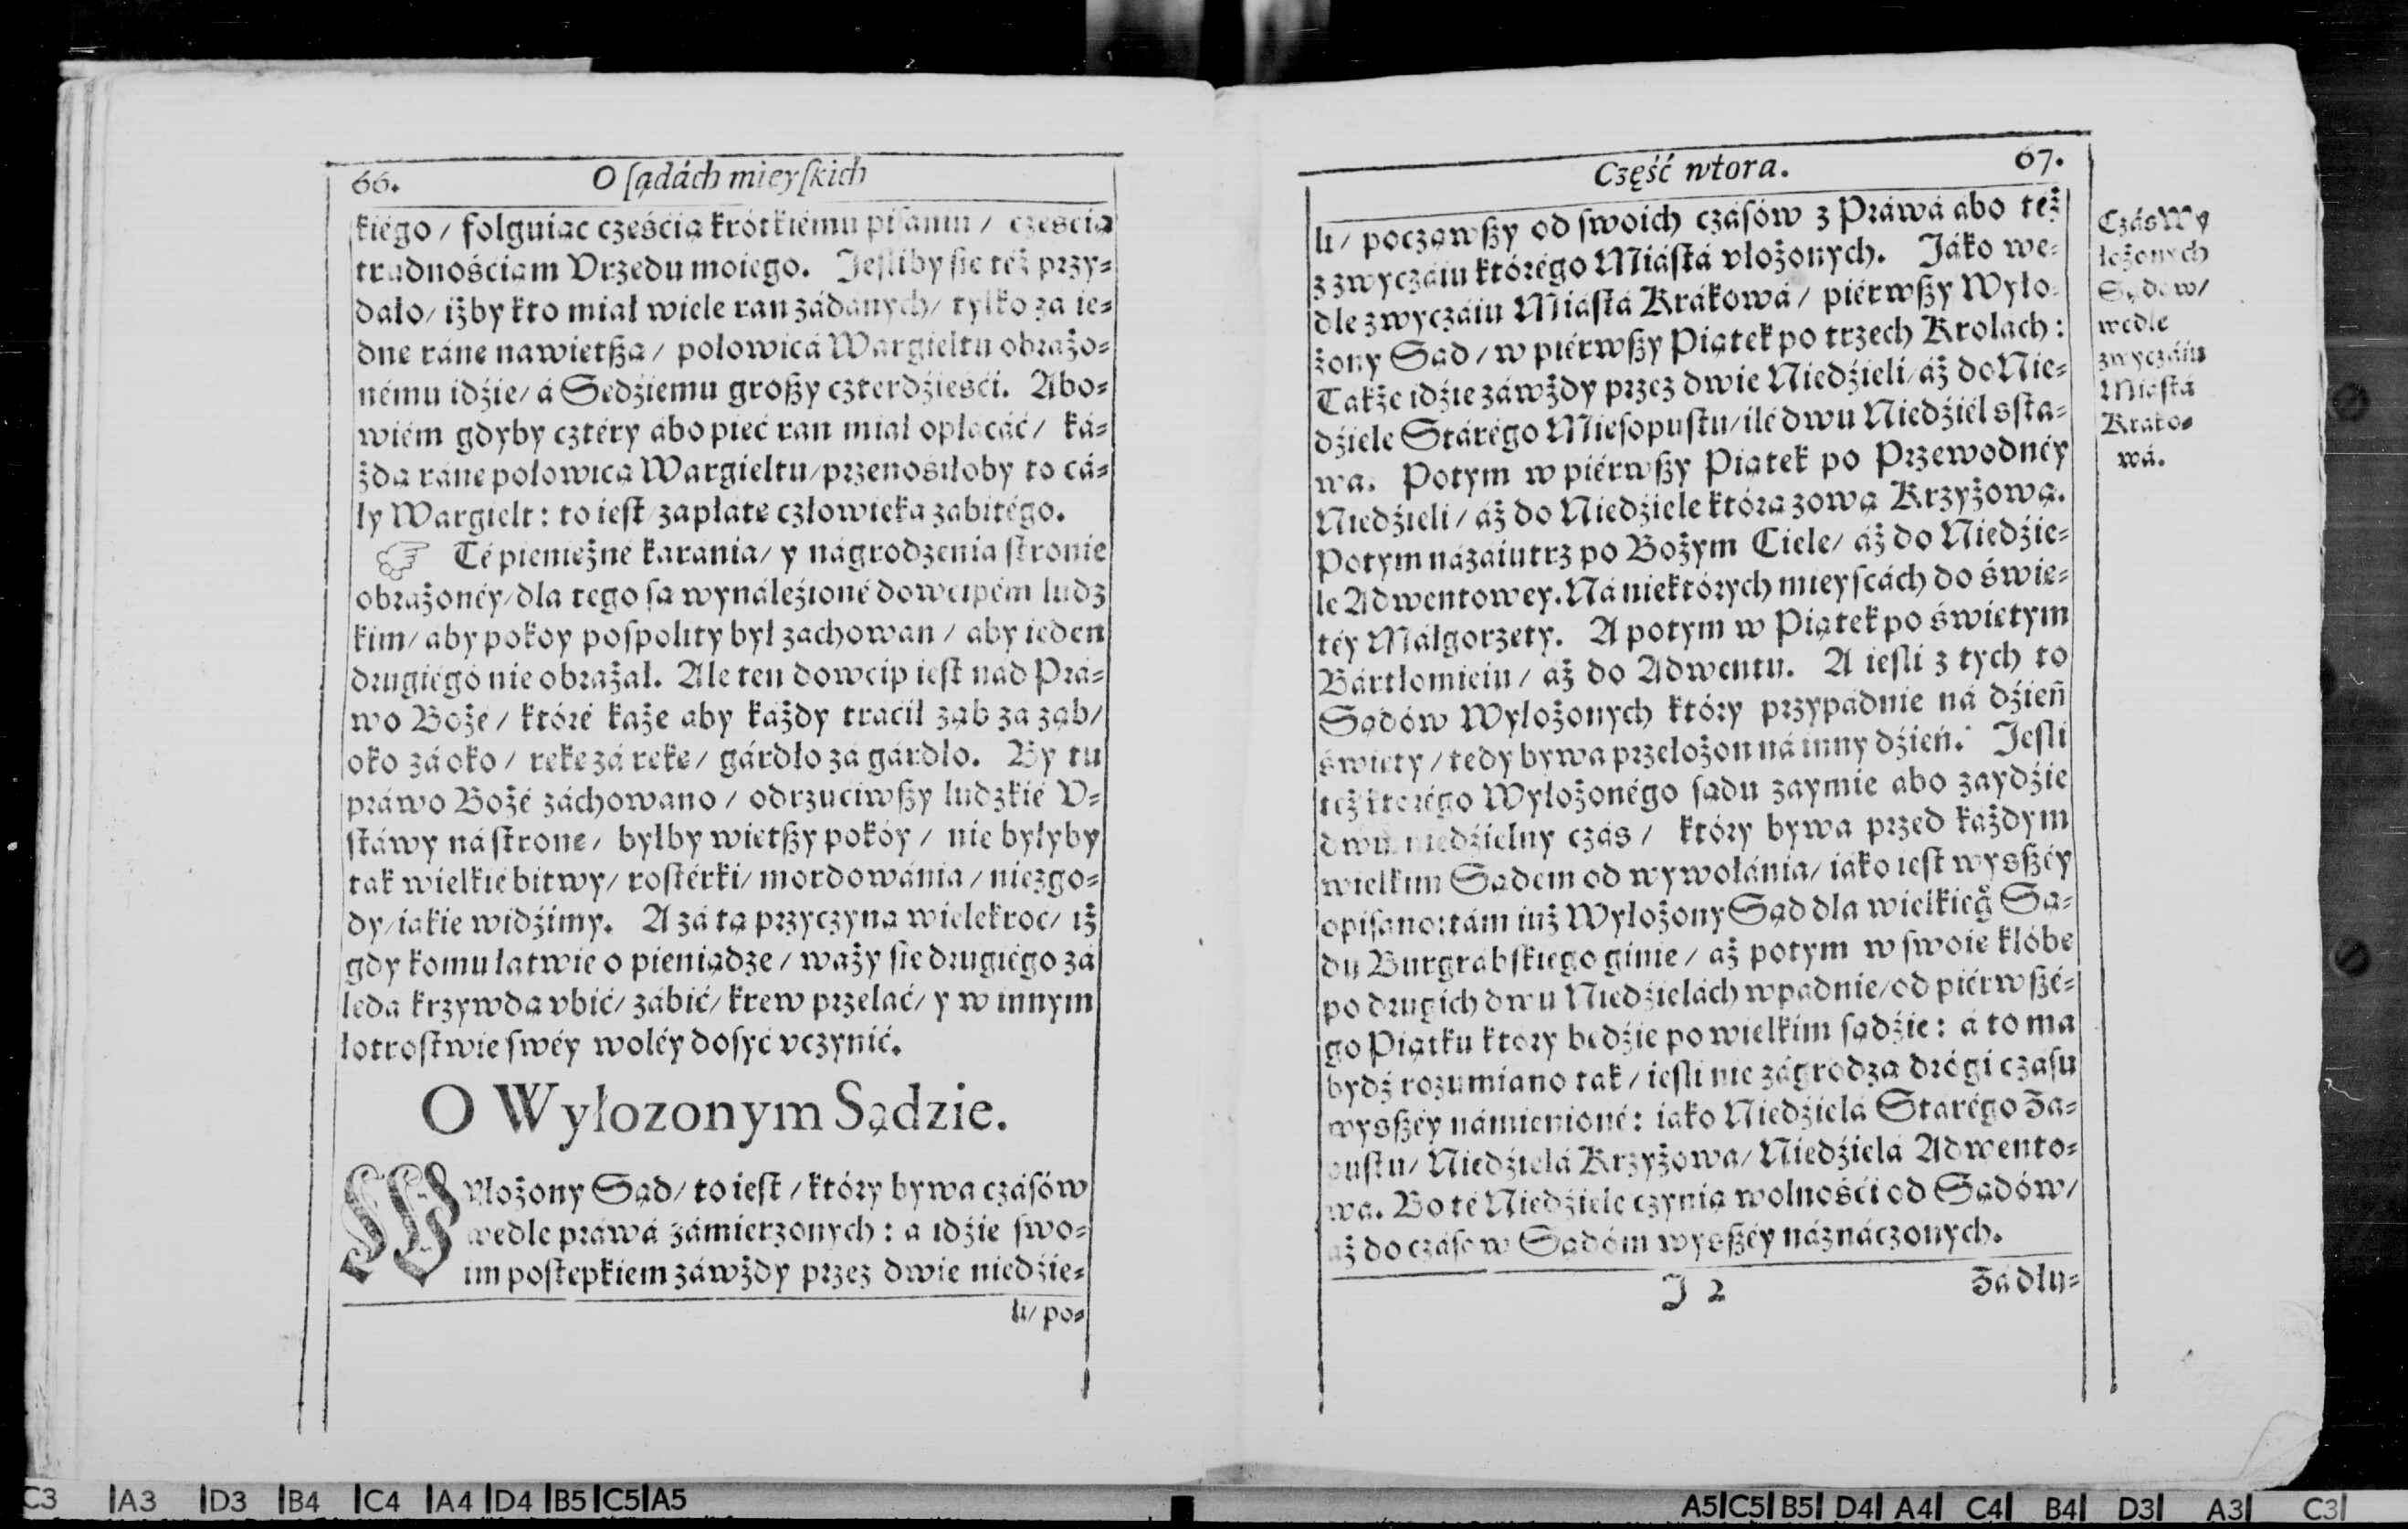 66.
O ſądách mieyſkich
kiégo / folguiąc częśćią krótkiému piſaniu / częśćią
trudnośćiam Vrzędu moiego. Jeſliby ſie też przy⸗
dało / iżby kto miał wiele ran zádánych / tylko za ie⸗
dnę ránę nawiętßą / połowicá Wargieltu obrażo⸗
nému idźie / á Sędźiemu großy czterdźieśći. Abo⸗
wiém gdyby cztéry ábo pięć ran miał opłacáć / ká⸗
żdą ránę połowicą Wargieltu / przenośiłoby to cá⸗
ły Wargielt : to ieſt zapłatę człowieka zabitégo.
☞ Té pieniężné karania / y nágrodzenia ſtronie
obrażonéy / dla tego ſą wynáleźioné dowcipém ludz
kim / aby pokoy poſpolity był zachowan / aby ieden
drugiégo nie obrażał. Ale ten dowcip ieſt nád Prá⸗
wo Bożé / któré każe aby każdy tráćił ząb za ząb /
oko zá oko / rękę zá rękę / gárdło zá gárdło. By tu
práwo Bożé záchowano / odrzućiwßy ludzkié V⸗
ſtáwy ná ſtronę / byłby więtßy pokóy / nie byłyby
tak wielkié bitwy / roſtérki / mordowánia / niezgo⸗
dy / iakie widźimy. A zá tą przyczyną wielekroć / iż
gdy komu łatwie o pieniądze / waży ſie drugiégo zá
leda krzywdą vbić / zábić / krew przelać / y w innym
łotroſtwie ſwéy woléy doſyć vczynić.
O Wyłozonym Sądzie.
WYłożony Sąd / to ieſt / który bywa czáſów
wedle práwá zámierzonych : a idźie ſwo⸗
im poſtępkiem záwżdy przez dwie niedźie⸗
li / po⸗
Część wtora.
67.
li / począwßy od ſwoich czáſów z Práwá abo też
z zwyczáiu którégo Miáſtá vłożonych. Jáko we⸗
dle zwyczáiu Miáſtá Krákowá / piérwßy Wyło⸗
żony Sąd / w piérwßy Piątek po trzech Krolach :
Także idźie záwżdy przez dwie Niedźieli / áż do Nie⸗
dźiele Stárégo Mięſopuſtu / ilé dwu Niedźiél sſta⸗
wa. Potym w piérwßy Piątek po Przewodnéy
Niedźieli / áż do Niedźiele którą zową Krzyżową.
Potym názaiutrz po Bożym Ciele / áż do Niedźie⸗
le Adwentowey. Ná niektórych mieyſcách do świę⸗
téy Málgorzéty. A potym w Piątek po świętym
Bártłomieiu / áż do Adwentu. A ieſli z tych to
Sądów Wyłożonych który przypádnie ná dźień
święty / tedy bywa przełożon ná inny dźień. Jeſli
też którégo Wyłożonégo ſądu zaymie abo zaydźie
dwu niedźielny czás / który bywa przed każdym
wielkim Sądem od wywołánia / iáko ieſt wysßéy
opiſano: tám iuż Wyłożony Sąd dla wielkieg̊ Są⸗
du Burgrabſkiego ginie / aż potym w ſwoię klóbę
po drugich dwu Niedźielách wpadnie / od piérwßé⸗
go Piątku który będźie po wielkim ſądźie : á to ma
bydź rozumiano tak / ieſli nie zágrodzą drógi czaſu
wysßéy námienioné : iáko Niedźielá Starégo Za⸗
puſtu / Niedźielá Krzyżowa / Niedźielá Adwento⸗
wa. Bo té Niedźiele czynią wolnośći od Sądów /
aż do czáſów Sądóm wysßéy náznáczonych.
J 2
Zadłu⸗
Czás Wy
łożonych
Sądow /
wedle
zwyczáiu
Miáſtá
Kráko⸗
wá.
C3 A3 D3 B4 C4 A4 D4 B5 C5 A5
A5 C5 B5 D4 A4 C4 B4 D3 A3 C3